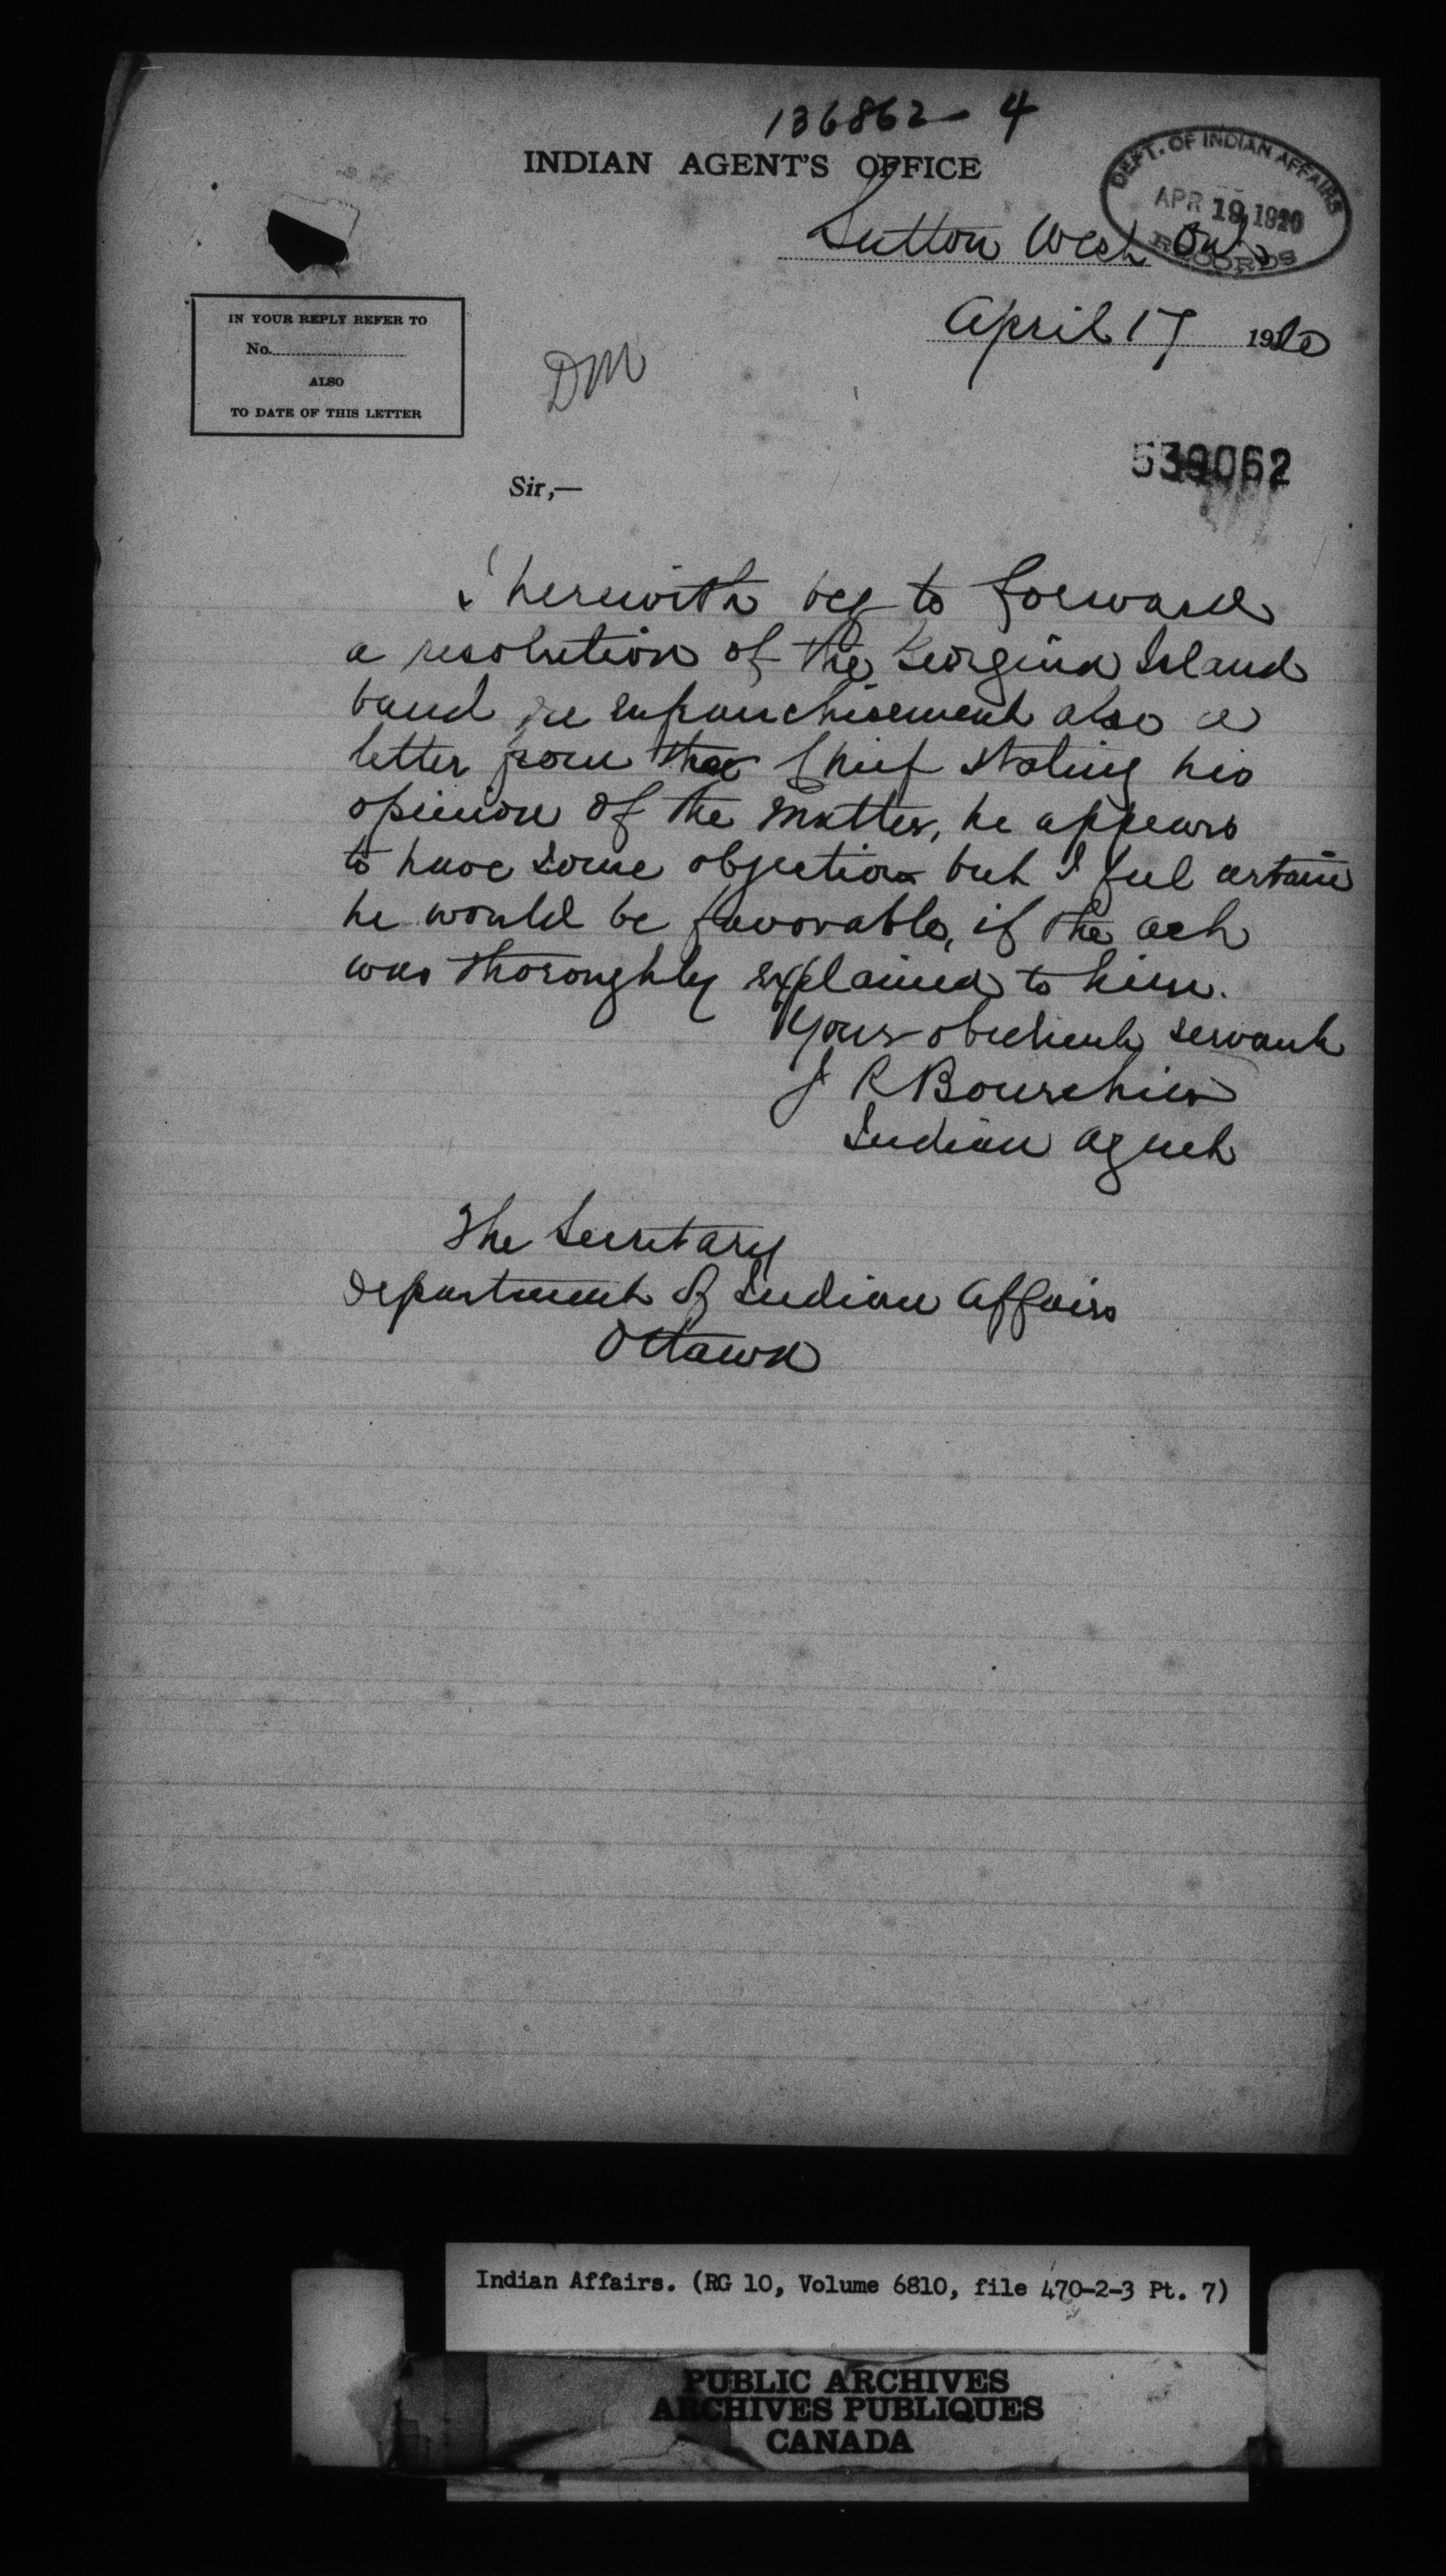 136862-4
INDIAN AGENT'S OFFICE
DEPT. OF INDIAN AFFAIRS
APR 19 1920
RECORDS
Sutton West Ont
April 17 1920
IN YOUR REPLY REFER TO
No.
ALSO
TO DATE OF THIS LETTER
DM
539062
Sir,—
I herewith beg to forward
a resolution of the Georgina Island
band re enfranchisement also a
letter from the Chief stating his
opinion of the matter, he appears
to have some objection but I feel certain
he would be favorable, if the act
was thoroughly explained to him.
Your obedient servant
J R Bourchier
Indian Agent
The Secretary
Department of Indian Affairs
Ottawa
Indian Affairs. (RG 10, Volume 6810, file 470-2-3 Pt. 7)
PUBLIC ARCHIVES
ARCHIVES PUBLIQUES
CANADA